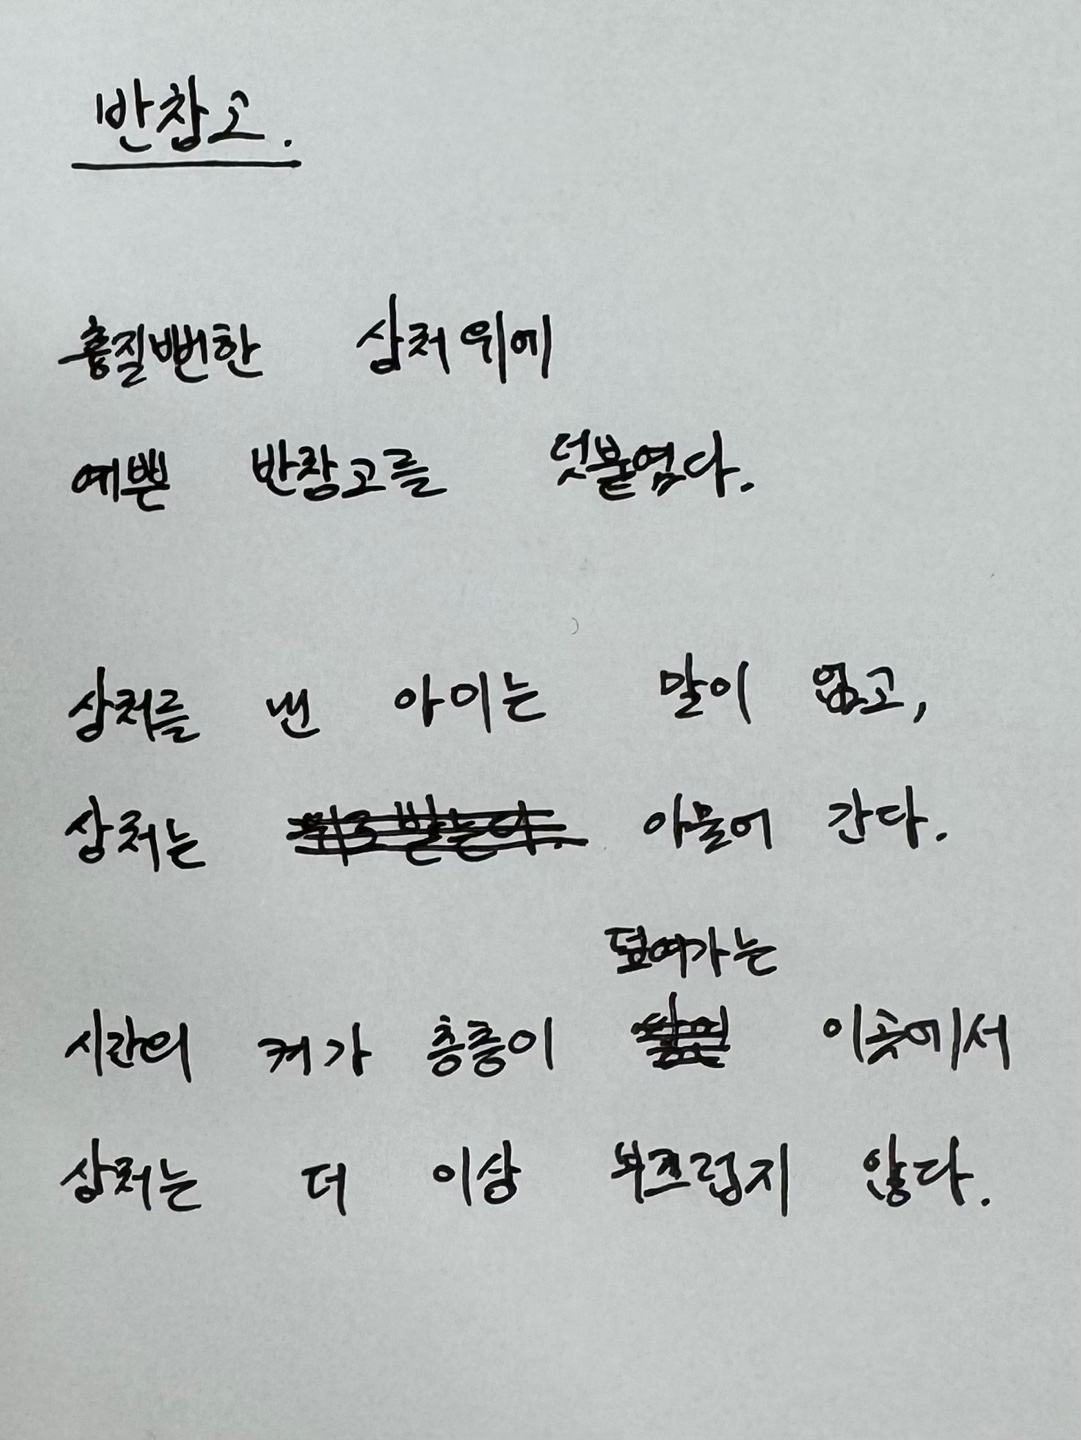 반창고.
흥질뻔한 상처 위에
예쁜 반창고를 덧붙였다.
상처를 낸 아이는 말이 없고,
상처는 아물어 간다.
덮여가는
시간의 켜가 층층이 이곳에서
상처는 더 이상 부끄럽지 않다.